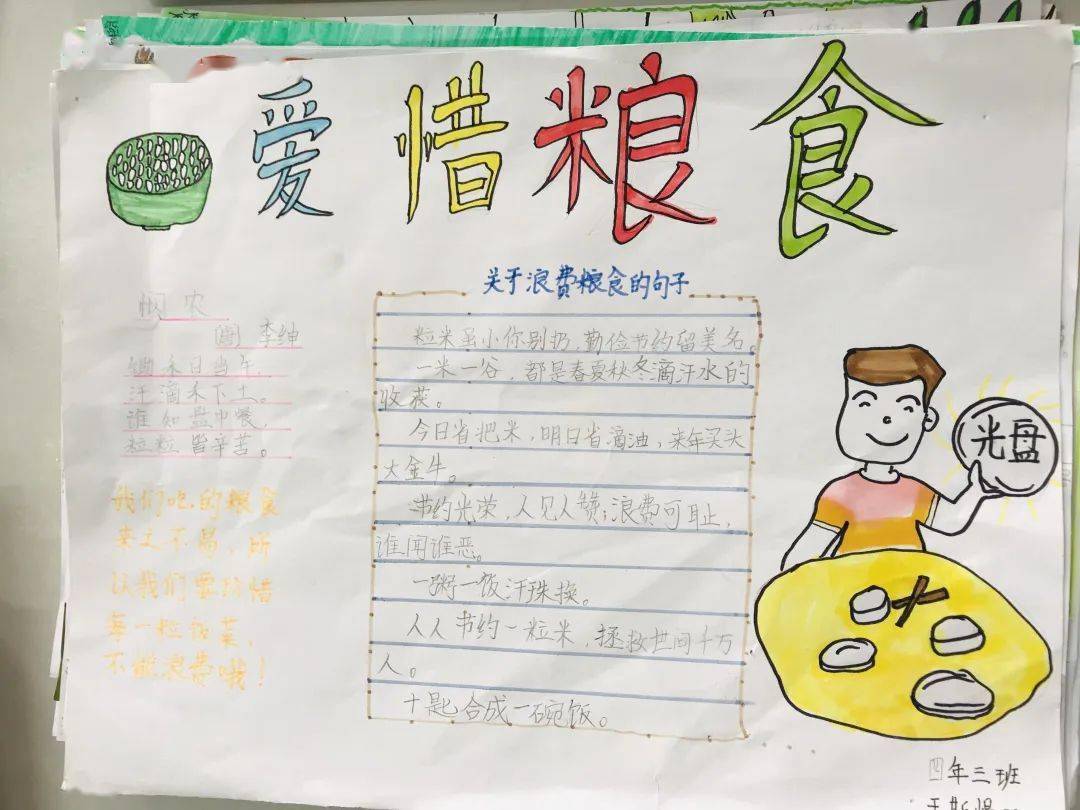 爱惜粮食
悯农
[唐] 李绅
锄禾日当午,
汗滴禾下土。
谁知盘中餐,
粒粒皆辛苦。
我们吃的粮食
来之不易,所
以我们要珍惜
每一粒饭菜,
不能浪费哦!
关于浪费粮食的句子
粒米虽小你别扔,勤俭节约留美名。
一米一谷,都是春夏秋冬滴汗水的
收获。
今日省把米,明日省滴油,来年买头
大金牛。
节约光荣,人见人赞;浪费可耻,
谁闻谁恶。
一粥一饭汗珠换。
人人节约一粒米,拯救世间千万
人。
十匙合成一碗饭。
光盘
四年三班